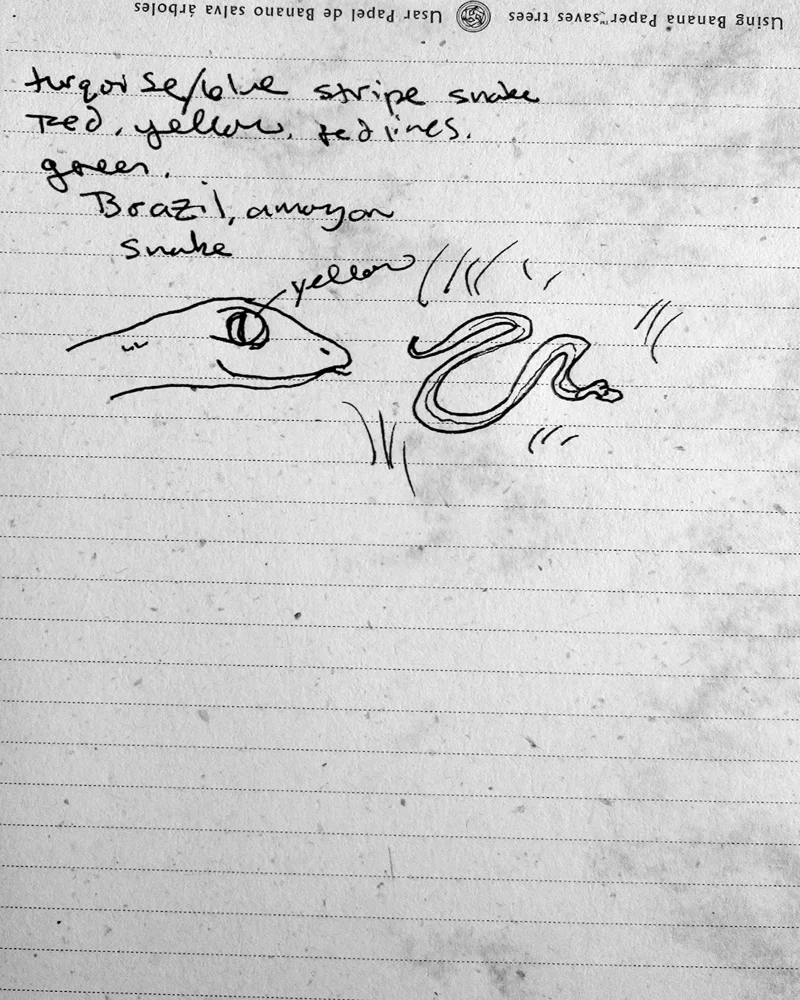 Using Banana Paper saves trees™ Usar Papel de Banano salva árboles
turqoise/blue stripe snake
Red, yellow, red lines.
green.
Brazil, amayon
snake
yellow